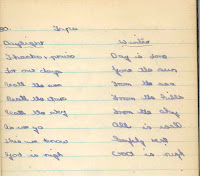 80. Taps
Daylight Winter
Thanks, praise Day is done
for our days Gone the sun
'neath the sun From the sea
'neath the stars From the hills
'neath the sky From the sky
As we go All is well
this we know Safely rest
God is nigh God is nigh